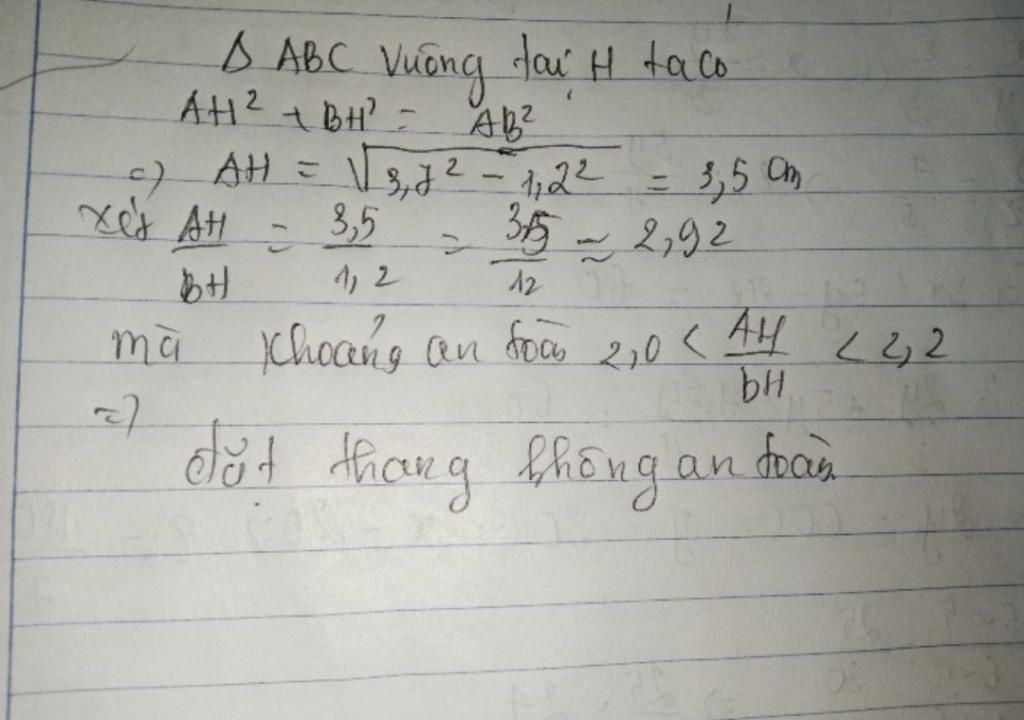 Δ ABC vuông tại H ta co
AH² + BH² = AB²
=) AH = √3,7² - 1,2² = 3,5 cm
xét AH/BH = 3,5/1,2 = 35/12 ≈ 2,92
mà khoảng an toàn 2,0 < AH/bH < 2,2
=)
đặt thang không an toàn